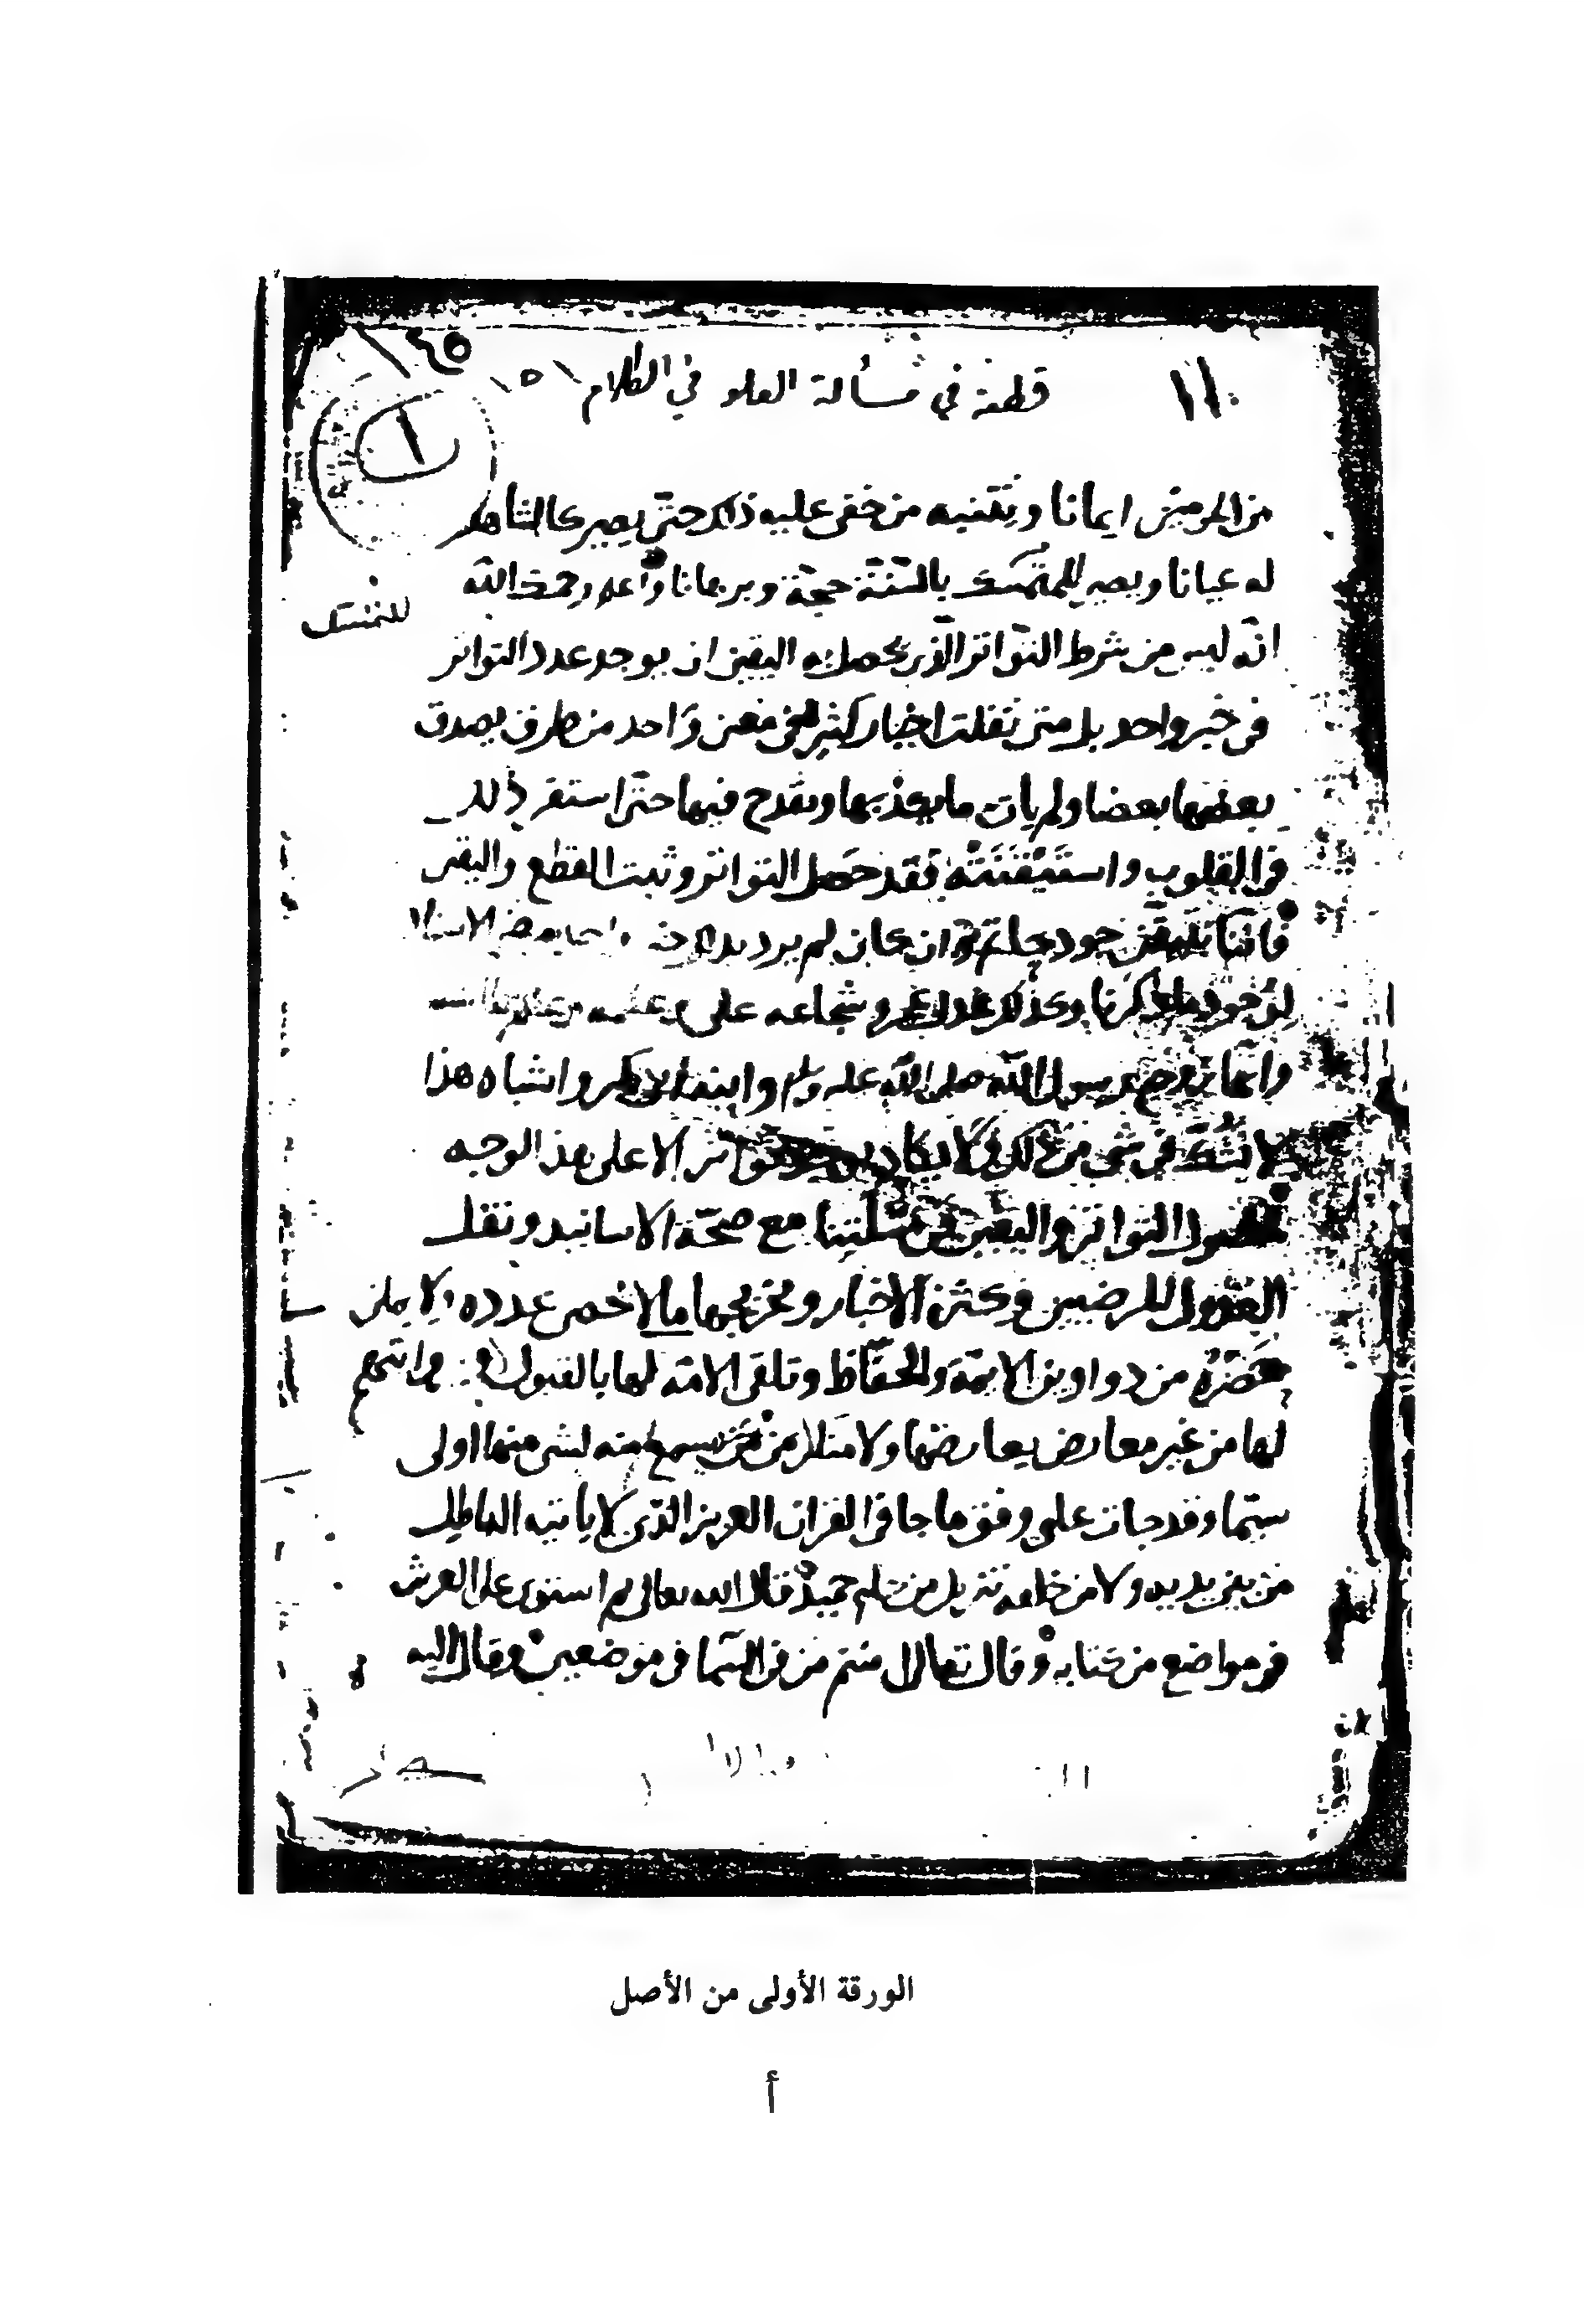 ١٤٥
١١٠ قطعة في مسألة العلو في الكلام
١
من المؤمنين ايمانا وننبه من خفى عليه ذلك حتى يصير كالمشاهد
له عيانا ويصير للمتمسك بالسنة حجة وبرهانا واعلم رحمك الله
للمتمسك
انه ليس من شرط التواتر الذي يحصل به اليقين ان يوجد عدد التواتر
في خبر واحد بل متى نقلت اخبار كثيرة في معنى واحد من طرق يصدق
بعضها بعضا ولم يات ما يكذبها ويقدح فيها حتى استقر ذلك
في القلوب واستيقنته فقد حصل التواتر وثبت القطع واليقين
فاننا نتيقن جود حاتم وان كان لم يرد بذلك
لوجود ما ذكرنا وكذلك عدل عمر وشجاعة على وعلمه
وانها زوج رسول الله صلى الله عليه وسلم وابنة ابى بكر واشباه هذا
لا يشك في شي من ذلك ولا يكاد يوجد تواتر الا على هذا الوجه
فحصول التواتر واليقين في مسئلتنا مع صحة الاسانيد ونقل
العدول المرضيين وكثرة الاخبار وتخريجها ما لا يحصى عدده ولا يمكن
حصره من دواوين الايمة والحفاظ وتلقى الامة لها بالقبول وروايتهم
لها من غير معارض يعارضها ولا منكر ممن يسمع منه لشي منها اولى
سيما وقد جات على وفق ما جا في القران العزيز الذي لا ياتيه الباطل
من بين يديه ولا من خلفه تنزيل من حكيم حميد قال الله تعالى ثم استوى على العرش
في مواضع من كتابه وقال تعالى اامنتم من في السما في موضعين وقال اليه
الورقة الأولى من الأصل
أ